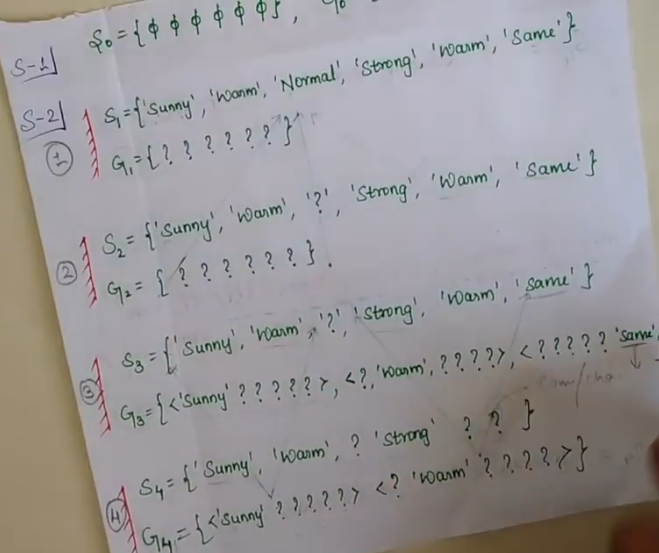 S-1 S₀={ϕ ϕ ϕ ϕ ϕ ϕ},
S-2 S₁={'Sunny', 'Warm', 'Normal', 'Strong', 'Warm', 'Same'}
① G₁={? ? ? ? ? ?}
S₂={'Sunny', 'Warm', '?', 'Strong', 'Warm', 'Same'}
② G₂={? ? ? ? ? ?}.
S₃={'Sunny', 'Warm', '?', 'Strong', 'Warm', 'Same'}
③ G₃={<'Sunny' ? ? ? ? ? ?>, <?, 'Warm', ? ? ? ?>, <? ? ? ? ? 'Same',
S₄={'Sunny', 'Warm', ? 'Strong' ? ? }
④ G₄={<'Sunny' ? ? ? ? ? ?> <? 'Warm' ? ? ? ? >}